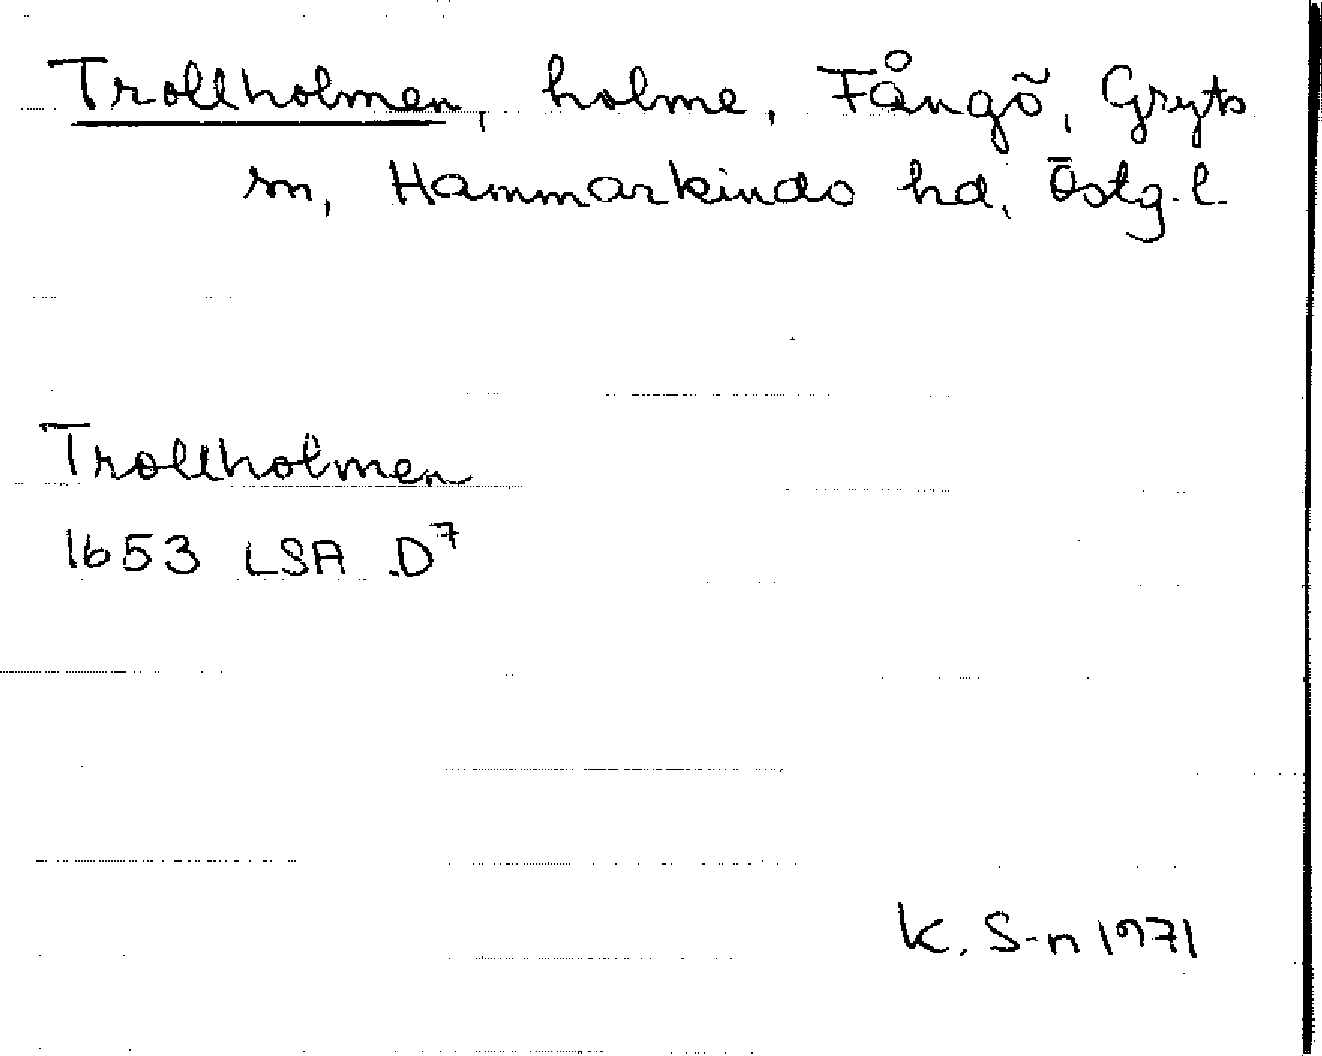 Trollholmen, holme, Fångö, Gryts
sn, Hammarkinds hd, Östg. l.
Trollholmen
1653 LSA D⁷
K. S-n 1971